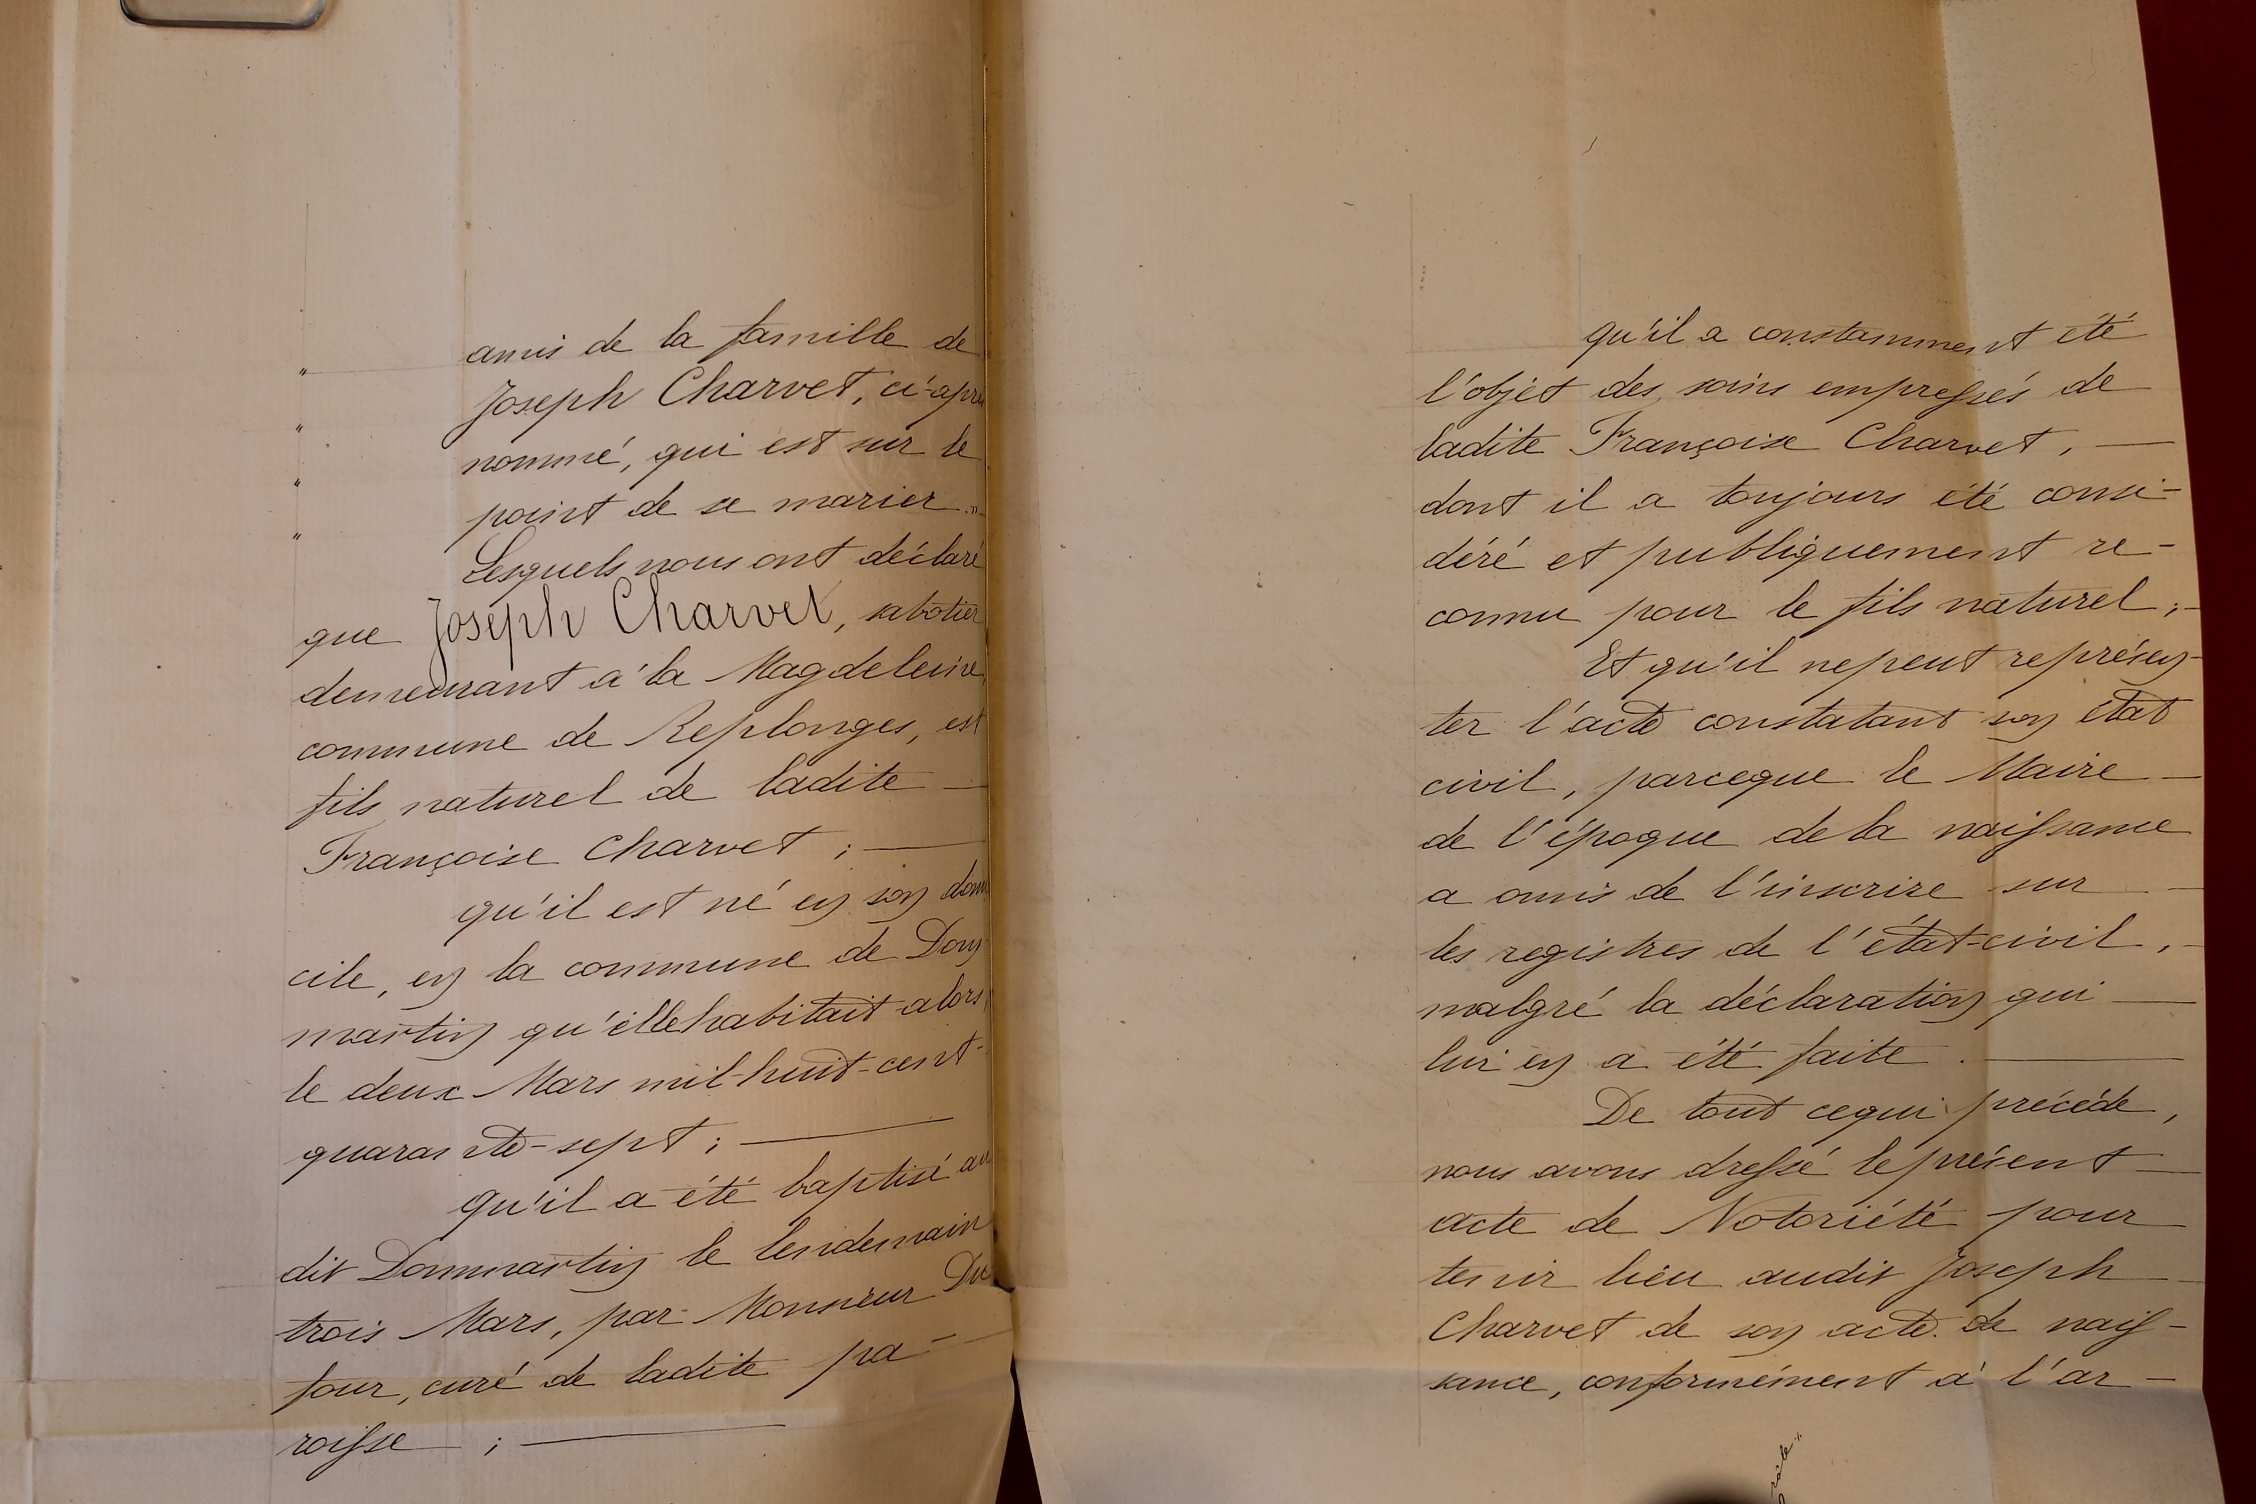 amis de la famille de
Joseph Charvet, ci-après
nommé, qui est sur le
point de se marier . "
Lesquels nous ont déclaré
que Joseph Charvet, sabotier
demeurant à la Magdeleine,
commune de Replonges, est
fils naturel de ladite —
Françoise Charvet ; —
qu'il est né en son domi
cile, en la commune de Dom
martin qu'elle habitait alors,
le deux Mars mil-huit-cent-
quarante-sept ; —
qu'il a été baptisé au
dit Dommartin le lendemain
trois Mars, par Monsieur Du
four, curé de ladite pa-
roisse ; —
qu'il a constamment été
l'objet des soins empressés de
ladite Françoise Charvet, —
dont il a toujours été consi-
déré et publiquement re-
connu pour le fils naturel ; -
Et qu'il ne peut représen-
ter l'acte constatant son état
civil, parceque le Maire —
de l'époque de la naissance
a omis de l'inscrire sur —
les registres de l'état-civil, -
malgré la déclaration qui —
lui en a été faite . —
De tout ce qui précède,
nous avons dressé le présent —
acte de Notoriété pour
tenir lieu audit Joseph —
Charvet de son acte de nais-
sance, conformément à l'ar-